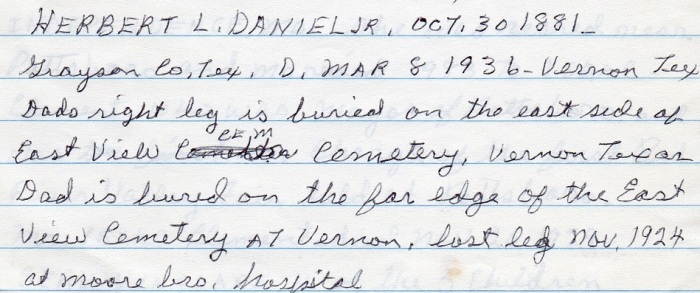 HERBERT L. DANIEL JR, OCT. 30 1881_
Grayson Co, Tex, D. MAR 8 1936 - Vernon Tex
Dads right leg is buried on the east side of
CEM
East View Cemetery, Vernon Texas
Dad is bured on the far edge of the East
View Cemetery AT Vernon, lost leg Nov. 1924
at moore bro, hospital